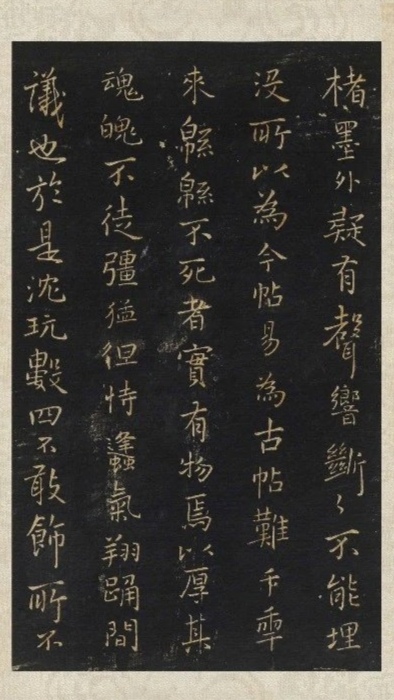 楮墨外疑有聲響斷〻不能埋
没所以為今帖易為古帖難千季
來緜緜不死者實有物焉以厚其
魂魄不徒彊猛徂恃蠭氣翔踊間
議也於是沈玩數四不敢飾所不